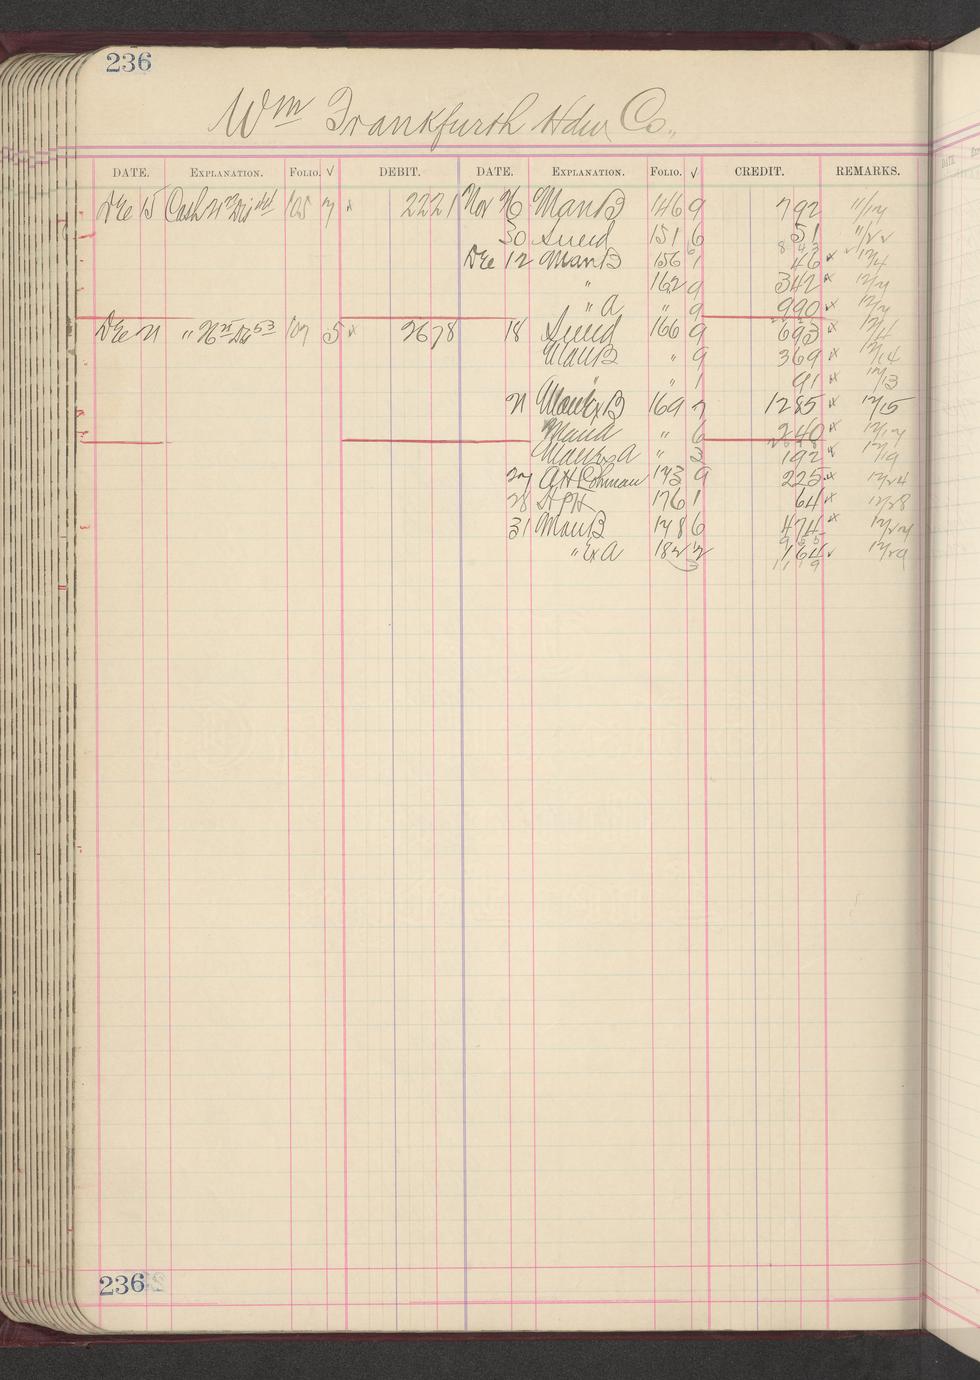 236
Wm Frankfurth Hdw Co.
DATE. EXPLANATION. FOLIO. √ DEBIT. DATE. EXPLANATION. FOLIO. √ CREDIT. REMARKS.
Dec 15 Cash 105 7 2221 Nov 26 Man B 146 9 792 11/17
30 Sued 151 6 51 11/22
843
Dec 12 Man B 156 1 46 12/4
" 162 9 342 12/7
" A " 9 990 12/7
Dec 21 " 107 5 2678 18 Sued 166 9 693 12/11
Man B " 9 369 12/14
" " 1 91 12/13
21 B 169 7 1285 12/15
Man A " 6 240 12/17
A " 3 192 12/19
27 A H Lohman 173 9 225 12/24
28 H P H 176 1 64 12/28
31 Man B 178 6 474 12/27
955
" Ex A 182 2 164 12/29
3 1119
236